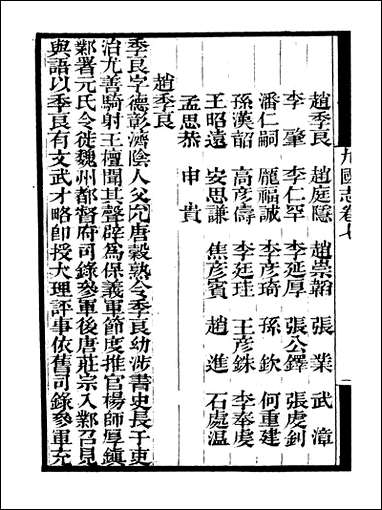 九國志卷七 一
趙季良 趙庭隱 趙崇韜 張業 武漳
李肇 李仁罕 李延厚 張公鐸 張虔釗
潘仁嗣 龐福誠 李彥琦 孫欽 何重建
孫漢韶 高彥儔 李廷珪 王彥銖 李奉虔
王昭遠 安思謙 焦彥賓 趙進 石處温
孟思恭 申貴
趙季良
季良字德彰濟陰人父允唐穀熟令季良幼涉書史長于吏
治尤善騎射王檀聞其聲辟爲保義軍節度推官楊師厚鎮
鄴署元氏令徙魏州都督府司錄參軍後唐莊宗入鄴召見
與語以季良有文武才略卽授大理評事依舊司錄參軍充